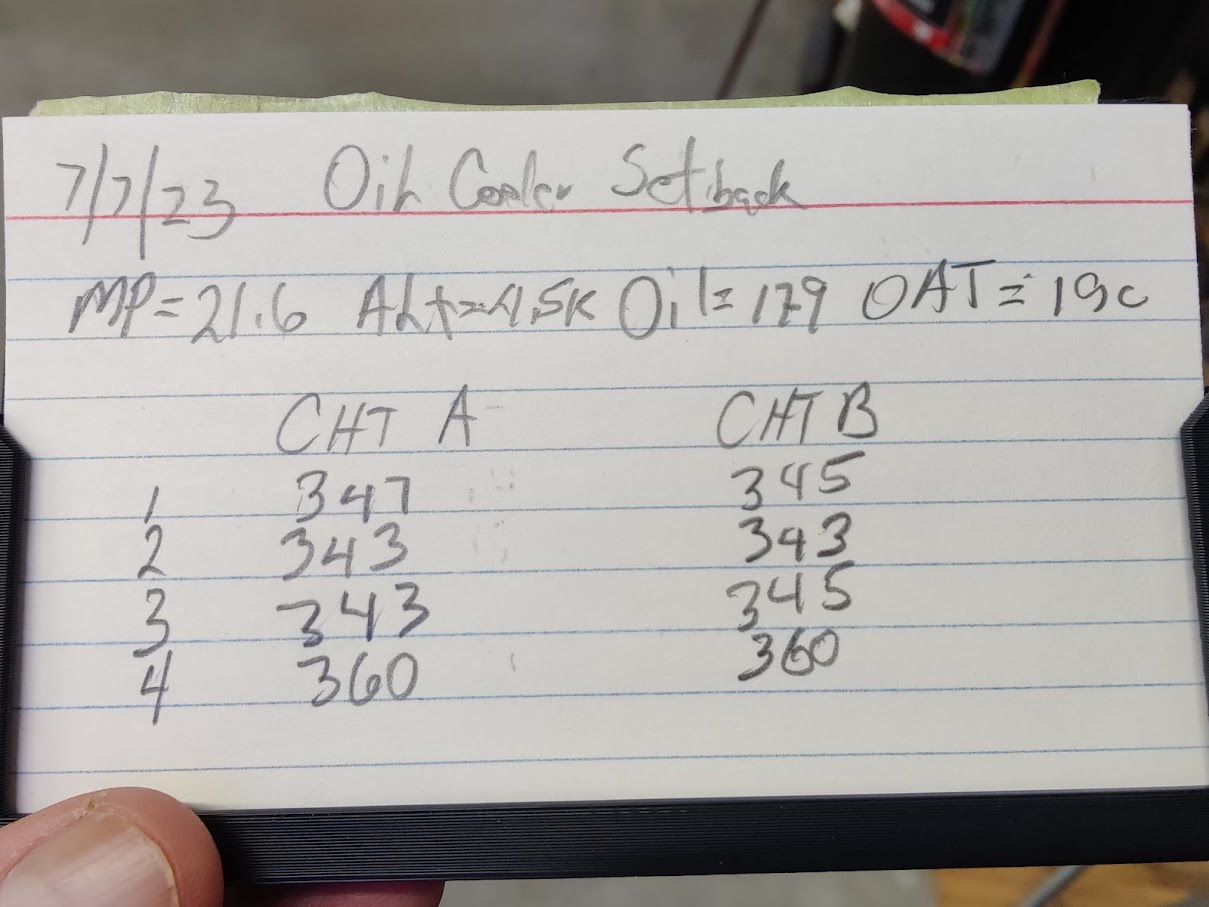 7/7/23 Oil Cooler Setback
MP=21.6 Alt=4.5K Oil=179 OAT=19c
CHT A CHT B
1 347 345
2 343 343
3 343 345
4 360 360